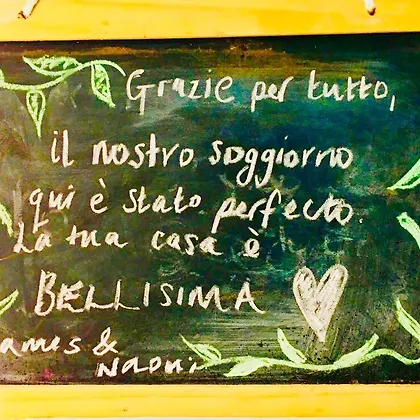 Grazie per tutto,
il nostro soggiorno
qui è stato perfecto.
La tua casa è
BELLISIMA
ames &
Naomi